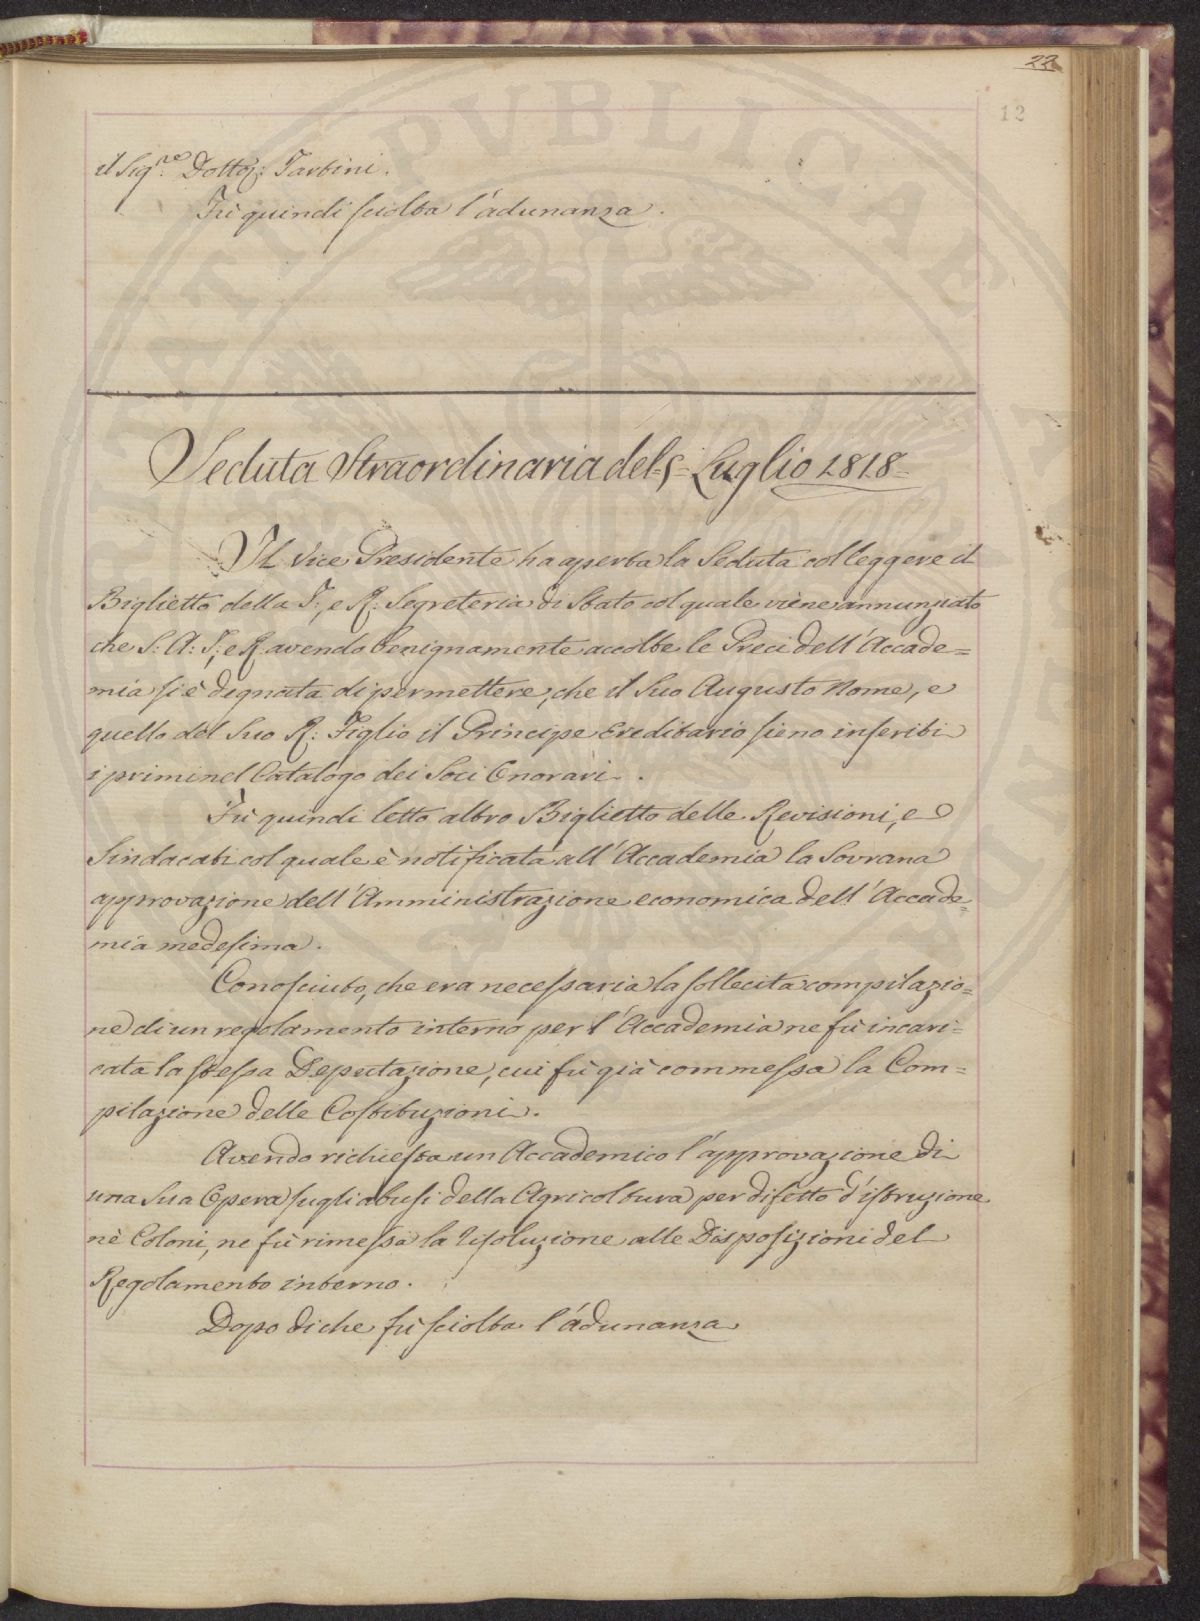 22
12
il Sig.re Dottor: Tartini.
Fù quindi sciolta l'adunanza.
Seduta Straordinaria del 5 Luglio 1818
Il Vice Presidente ha aperta la Seduta col leggere il
Biglietto della I:, e R: Segreteria di Stato col quale viene annunziato
che S: A: I:, e R. avendo benignamente accolte le Preci dell'Accade=
mia si è dignata di permettere, che il Suo Augusto Nome, e
quello del Suo R: Figlio il Principe Ereditario sieno inseriti
i primi nel Catalogo dei Soci Onorari.
Fù quindi letto altro Biglietto delle Revisioni, e
Sindacati col quale è notificata all'Accademia la Sovrana
approvazione dell'Amministrazione economica dell'Accade=
mia medesima.
Conosciuto, che era necessaria la sollecita compilazio=
ne di un regolamento interno per l'Accademia ne fù incari=
cata la stessa Deputazione, cui fù già commessa la Com=
pilazione delle Costituzioni.
Avendo richiesta un Accademico l'approvazione di
una Sua Opera sugli abusi della Agricoltura per difetto d'istruzione
nè Coloni, ne fù rimessa la risoluzione alle Disposizioni del
Regolamento interno.
Dopo di che fù sciolta l'adunanza